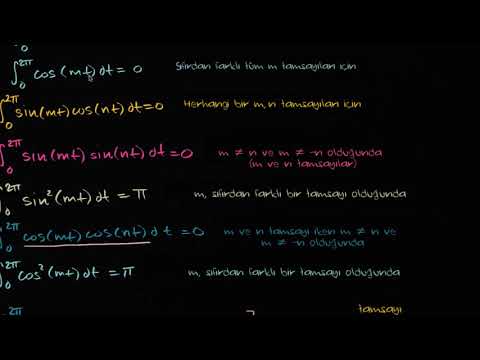 0
∫₀^2π cos(mt)dt = 0 Sıfırdan farklı tüm m tamsayıları için
∫₀^2π sin(mt)cos(nt)dt=0 Herhangi bir m,n tamsayıları için
∫₀^2π sin(mt)sin(nt)dt=0 m ≠ n ve m ≠ -n olduğunda
(m ve n tamsayılar)
∫₀^2π sin²(mt)dt = π m, sıfırdan farklı bir tamsayı olduğunda
∫₀^2π cos(mt)cos(nt)dt = 0 m ve n tamsayı iken m ≠ n ve
m ≠ -n olduğunda
∫₀^2π cos²(mt)dt = π m, sıfırdan farklı bir tamsayı olduğunda
2π tamsayı